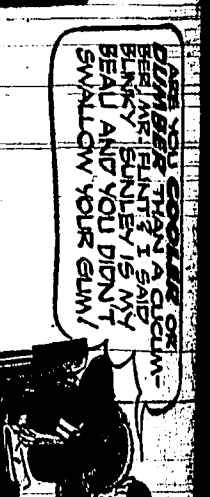 ARE YOU COOLER OR
DUMBER THAN A CUCUM-
BER, MR. FLINT? I SAID
BLINKY SUNLEY IS MY
BEAU AND YOU DIDN'T
SWALLOW YOUR GUM!